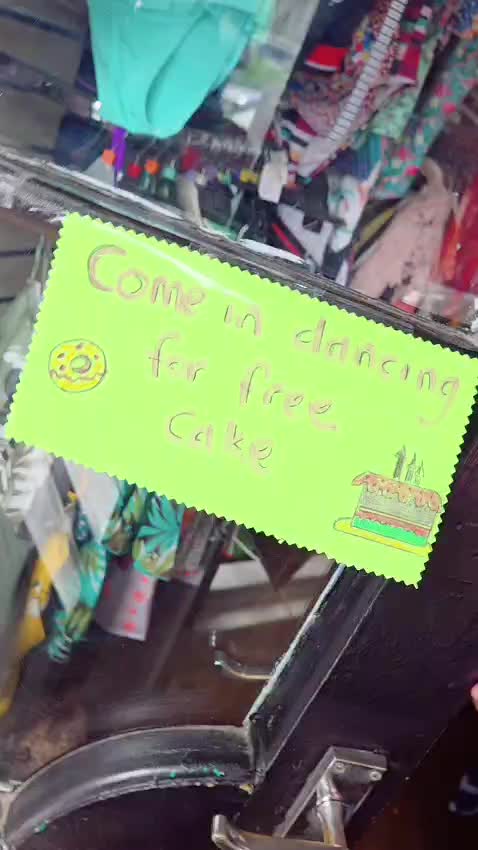 Come in dancing
for free
cake